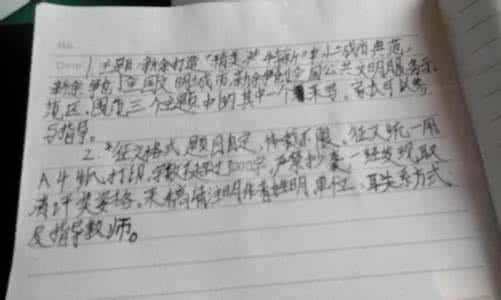 No.
Date
1. 主题:新余打造"精美
城市典范,
新余争创全国文明城市,新余争创全国公共文明服务示
范区,围绕三个主题中的其中一个 来写,
与指导。
2. 征文格式,题目自定,体裁不限,征文统一用
A4纸打印,字数 1000字,严禁抄袭,一经发现,取
消评奖资格,来稿请注明作者姓名,单位,联系方式,
及指导教师。